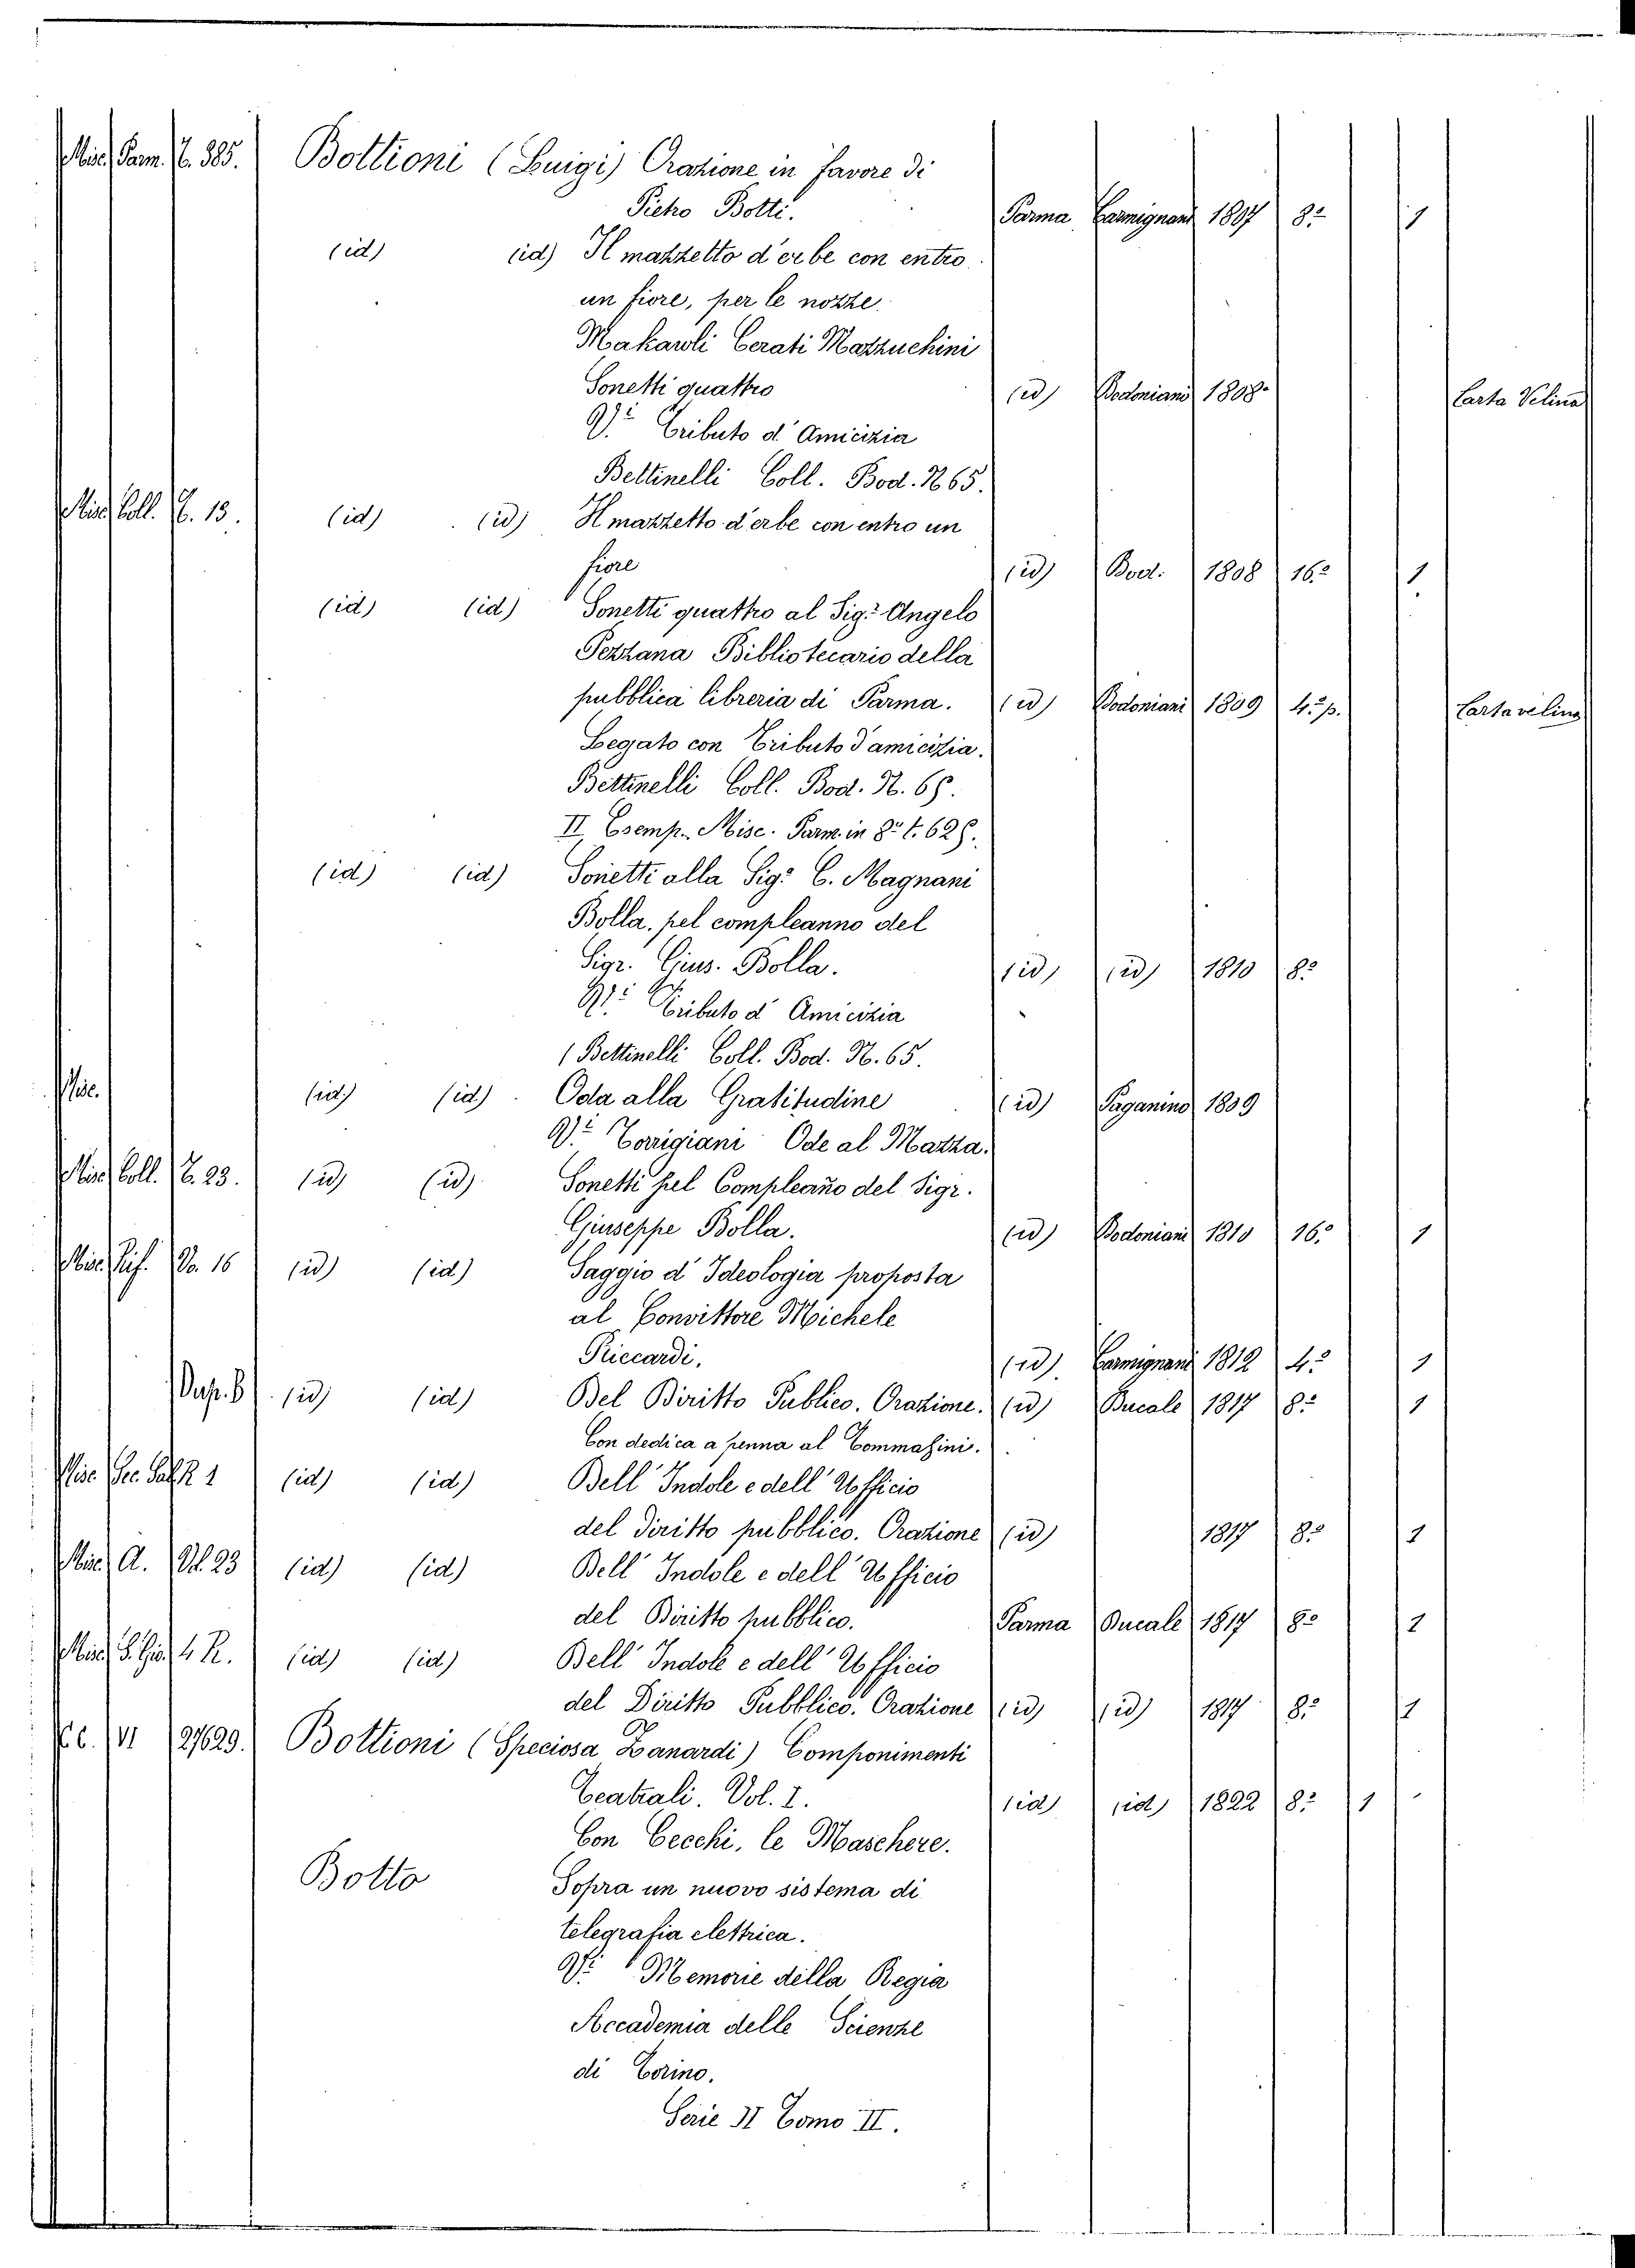 Misc. Parm. T. 385. Bottioni (Luigi) Orazione in favore di
Pietro Botti. Parma Carmignani 1807 8.º 1
(id) (id) Il mazzetto d'erbe con entro
un fiore, per le nozze
Cerati Mazzuchini
Sonetti quattro (id) Bodoniani 1808 Carta Velina
V.i Tributo d'Amicizia
Bettinelli Coll. Bod. N. 65.
Misc. Coll. T. 13. (id) (id) Il mazzetto d'erbe con entro un
fiore (id) Bod. 1808 16.º 1
(id) (id) Sonetti quattro al Sig.r Angelo
Pezzana Bibliotecario della
pubblica libreria di Parma. (id) Bodoniani 1809 4.º p. Carta velina
Legato con Tributo d'amicizia.
Bettinelli Coll. Bod. N. 65.
II Esemp. Misc. Parm. in 8.º t. 628.
(id) (id) Sonetti alla Sig.ª C. Magnani
Bolla, pel compleanno del
Sigr. Gius. Bolla. (id) (id) 1810 8.º
V.i Tributo d'Amicizia
(Bettinelli Coll. Bod. N. 65.
Misc. (id) (id) Oda alla Gratitudine (id) Paganino 1809
V.i Torrigiani Ode al Mazza.
Misc. Coll. T. 23. (id) (id) Sonetti pel Compleanno del Sigr.
Giuseppe Bolla. (id) Bodoniani 1810 16.º 1
Misc. 16 (id) (id) Saggio d'Ideologia proposta
al Convittore Michele
Riccardi. (id) Carmignani 1812 4.º 1
Dup. B (id) (id) Del Diritto Publico. Orazione. (id) Ducale 1817 8.º 1
Con dedica a penna al Tommasini.
Misc. 1 (id) (id) Dell'Indole e dell'Ufficio
del diritto pubblico. Orazione (id) 1817 8.º 1
Misc. A. Vol. 23 (id) (id) Dell'Indole e dell'Ufficio
del Diritto pubblico. Parma Ducale 1817 8.º 1
Misc. 4 R. (id) (id) Dell'Indole e dell'Ufficio
del Diritto Pubblico. Orazione (id) (id) 1817 8.º 1
VI 27629. Bottioni (Speciosa Zanardi) Componimenti
Teatrali. Vol. I. (id) (id) 1822 8.º 1
Con Cecchi, le Maschere.
Botto Sopra un nuovo sistema di
telegrafia elettrica.
V.i Memorie della Regia
Accademia delle Scienze
di Torino.
Serie II Tomo II.